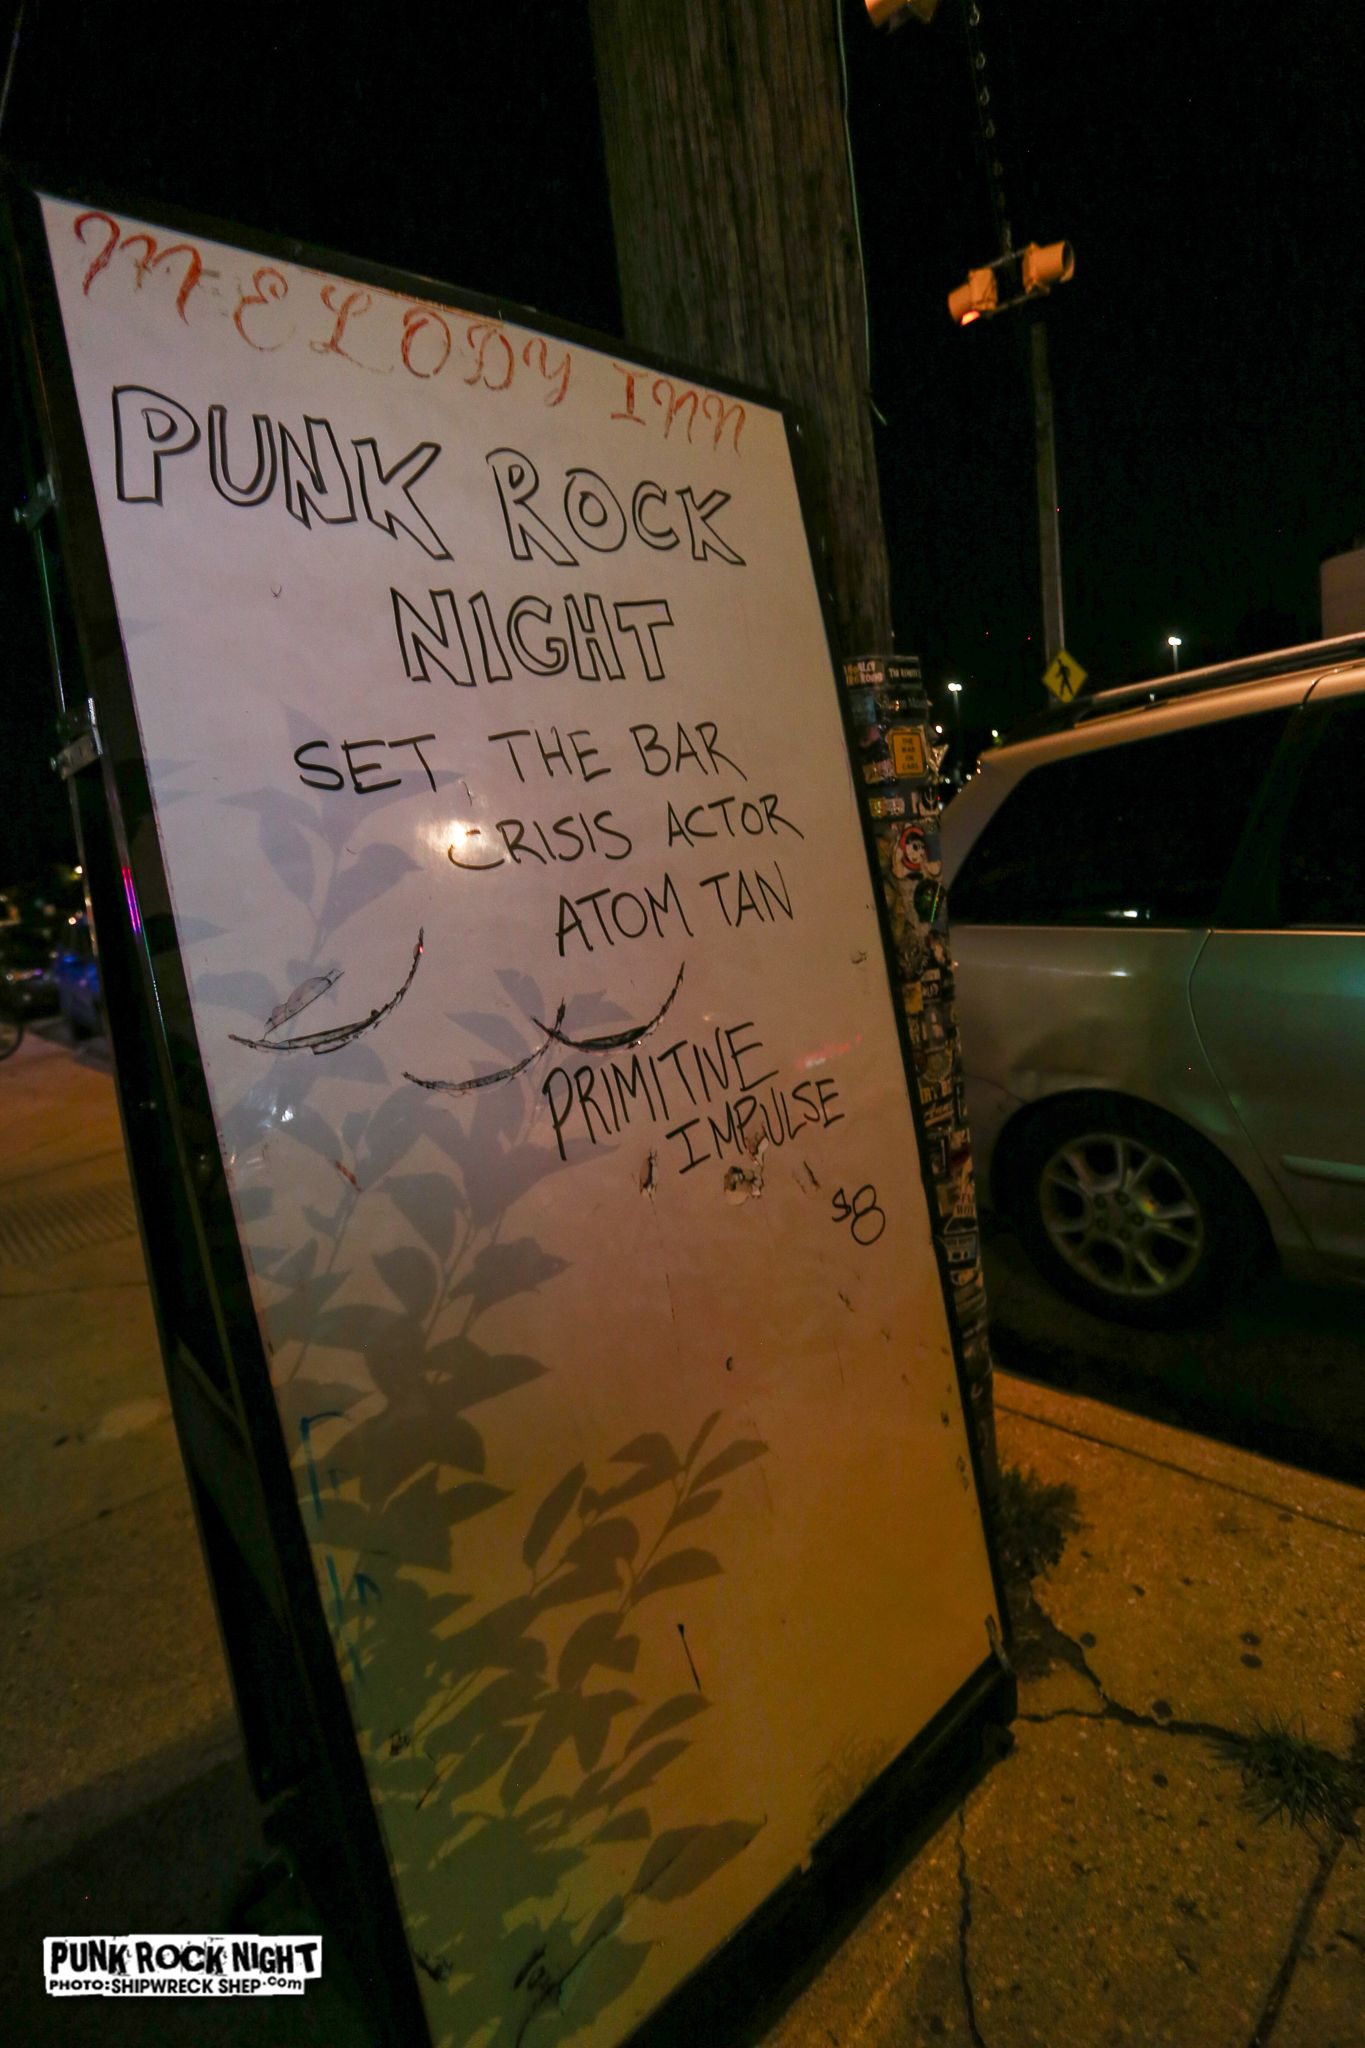 MELODY INN
PUNK ROCK
NIGHT
SET THE BAR
CRISIS ACTOR
ATOM TAN
PRIMITIVE
IMPULSE
$8
PUNK ROCK NIGHT
PHOTO:SHIPWRECK SHEP.com